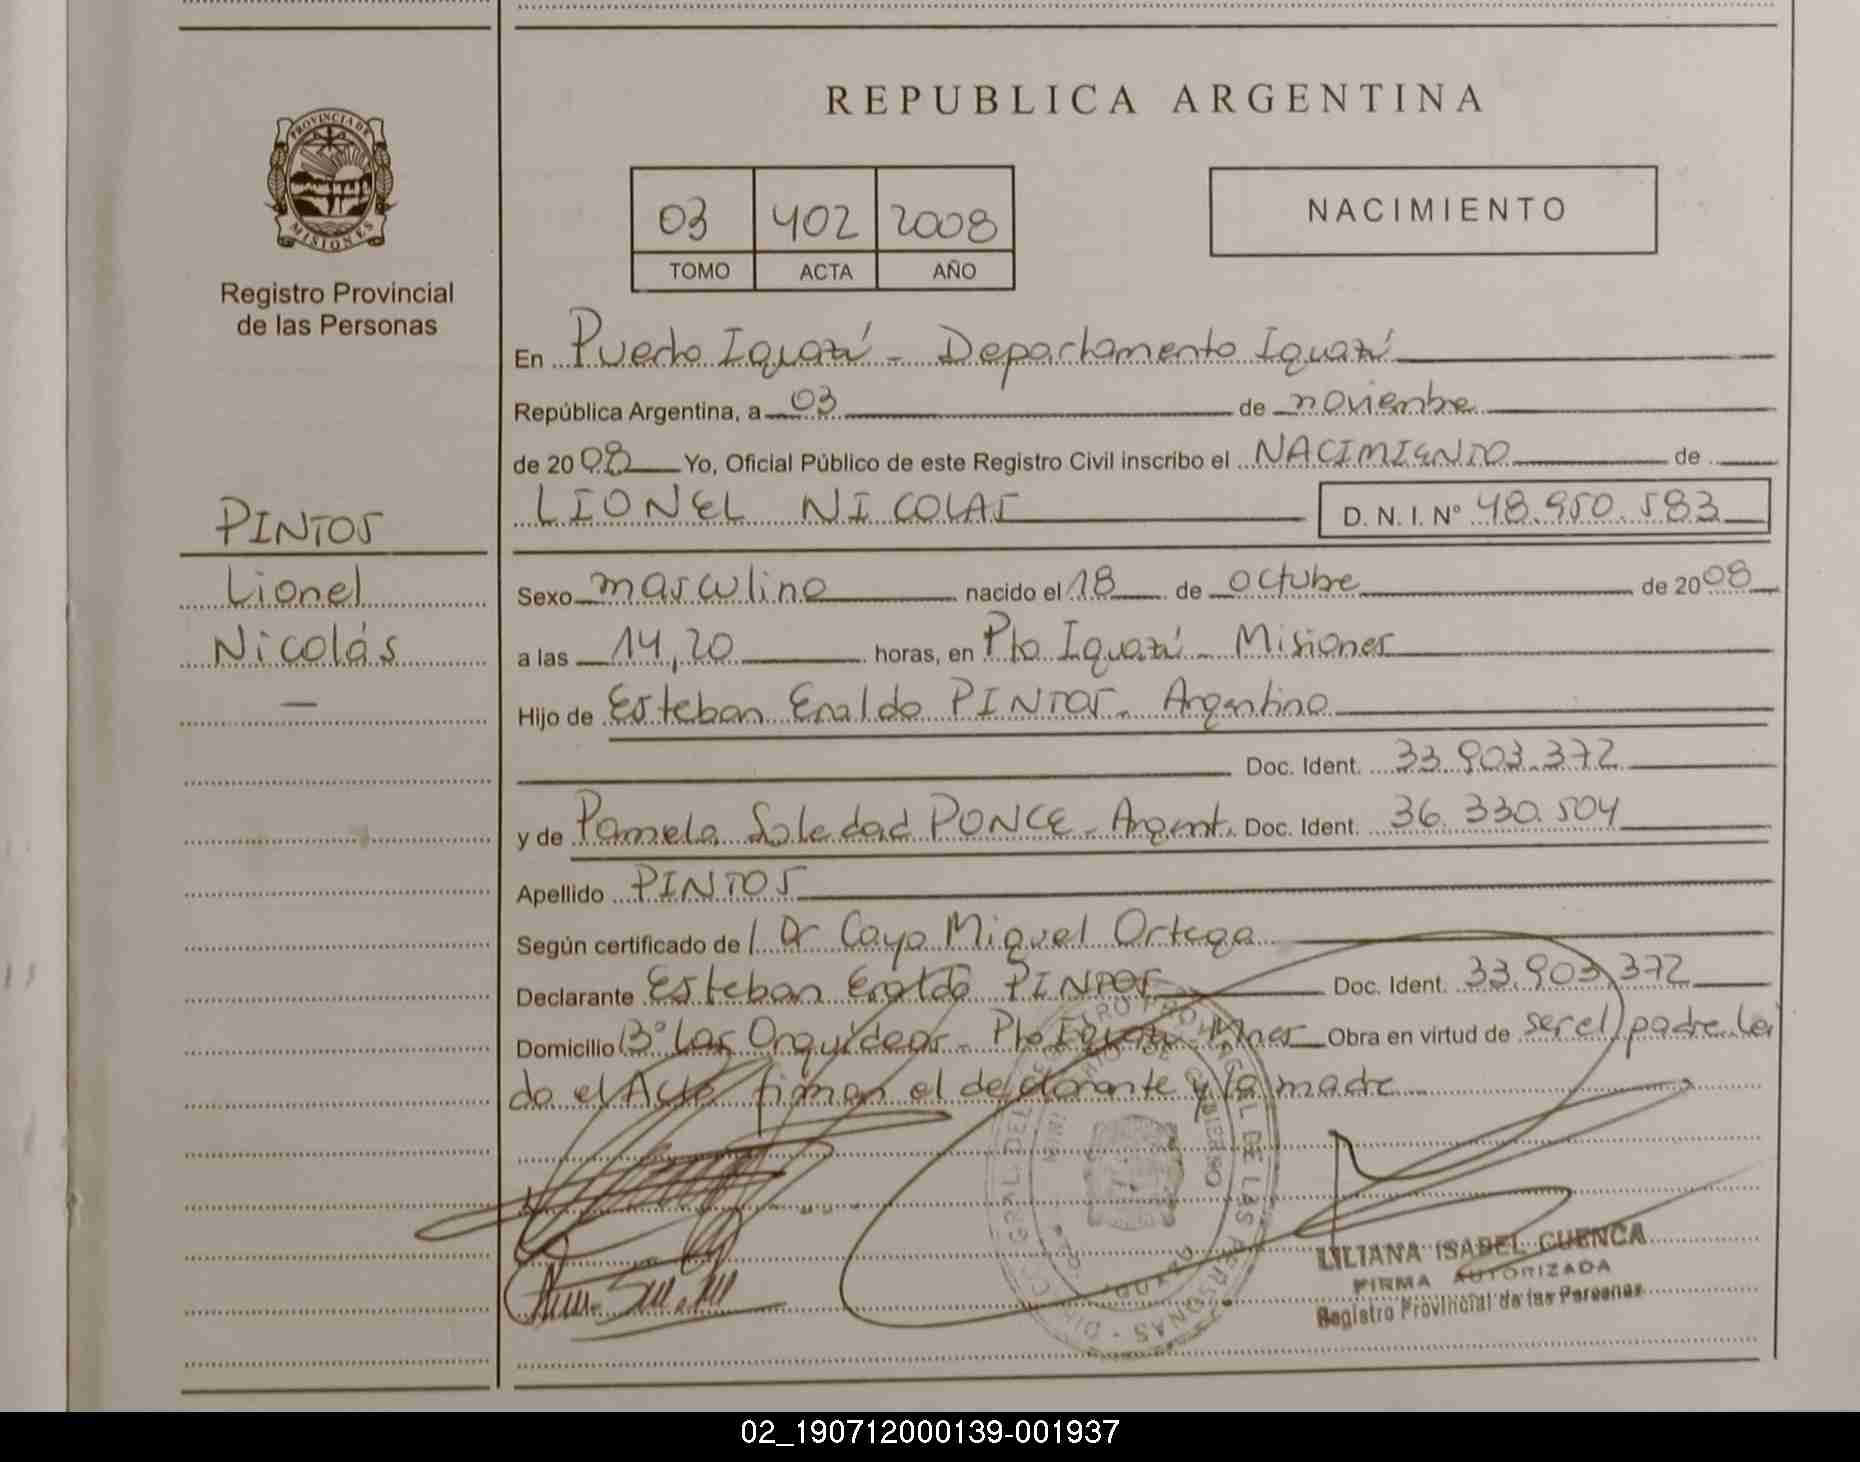 REPUBLICA ARGENTINA
PROVINCIA DE
MISIONES
Registro Provincial
de las Personas
03 402 2008
TOMO ACTA AÑO
NACIMIENTO
En Puerto Iguazú - Departamento Iguazú
República Argentina, a 03 de noviembre
de 2008 Yo, Oficial Público de este Registro Civil inscribo el NACIMIENTO de
LIONEL NICOLAS D. N. I. Nº 48.950.583
PINTOS
Lionel
Nicolás
—
Sexo masculino nacido el 18 de octubre de 2008
a las 14,20 horas, en Pto Iguazú - Misiones
Hijo de Esteban Eraldo PINTOS - Argentino
Doc. Ident. 33.903.372
y de Pamela Soledad PONCE - Argent. Doc. Ident. 36.330.504
Apellido PINTOS
Según certificado de l Dr Cayo Miguel Ortega
Declarante Esteban Eraldo PINTOS Doc. Ident. 33.903.372
Domicilio Bº Las Orquídeas - Pto Iguazú - Mnes Obra en virtud de ser el padre. Lei
do el Acta firman el declarante y la madre
LILIANA ISABEL CUENCA
FIRMA AUTORIZADA
Registro Provincial de las Personas
02_190712000139-001937